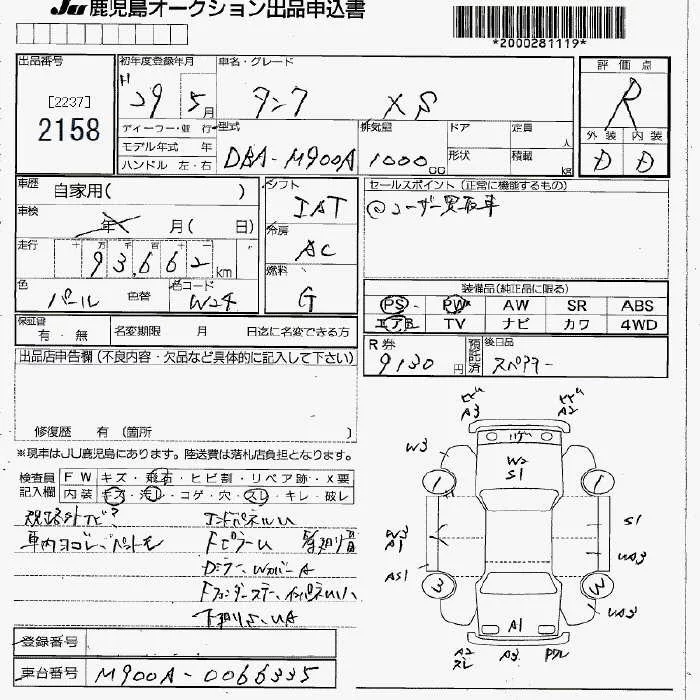 JU 鹿児島オークション出品申込書
*2000281119*
出品番号
[2237]
2158
初年度登録年月
H 29 5月
車名・グレード
タンク XS
評価点
R
外装 内装
D D
ディーラー・並 行
モデル年式 年
ハンドル 左・右
型式
DBA-M900A
排気量
1000 cc
ドア 定員 人
形状 積載 kg
車歴
自家用( )
車検
年 月( 日)
走行
十 万 千 百 十 一
93,662 km
色
パール 色替
色コード
W24
シフト
IAT
冷房
AC
燃料
G
セールスポイント (正常に機能するもの)
◎ユーザー買取車
装備品(純正品に限る)
PS PW AW SR ABS
エアB TV ナビ カワ 4WD
保証書
有・無
名変期限 月 日迄に名変できる方
R券
9130円
預託済
後日品
スペアキー
出品店申告欄(不良内容・欠品など具体的に記入して下さい)
修復歴 有 (箇所 )
※現車はJU鹿児島にあります。陸送費は落札店負担となります。
検査員記入欄
FW キズ・飛石・ヒビ割・リペア跡・X要
内装 キズ・汚レ・コゲ・穴・スレ・キレ・破レ
車内ヨゴレ、ペット毛
エンドパネルU
FピラーU
登録番号
車台番号 M900A-0066335
A3
A2
W3
W2
S1
1
1
A1
S1
AS1
UA3
3
3
UA3
A1
A2
スレ
A3